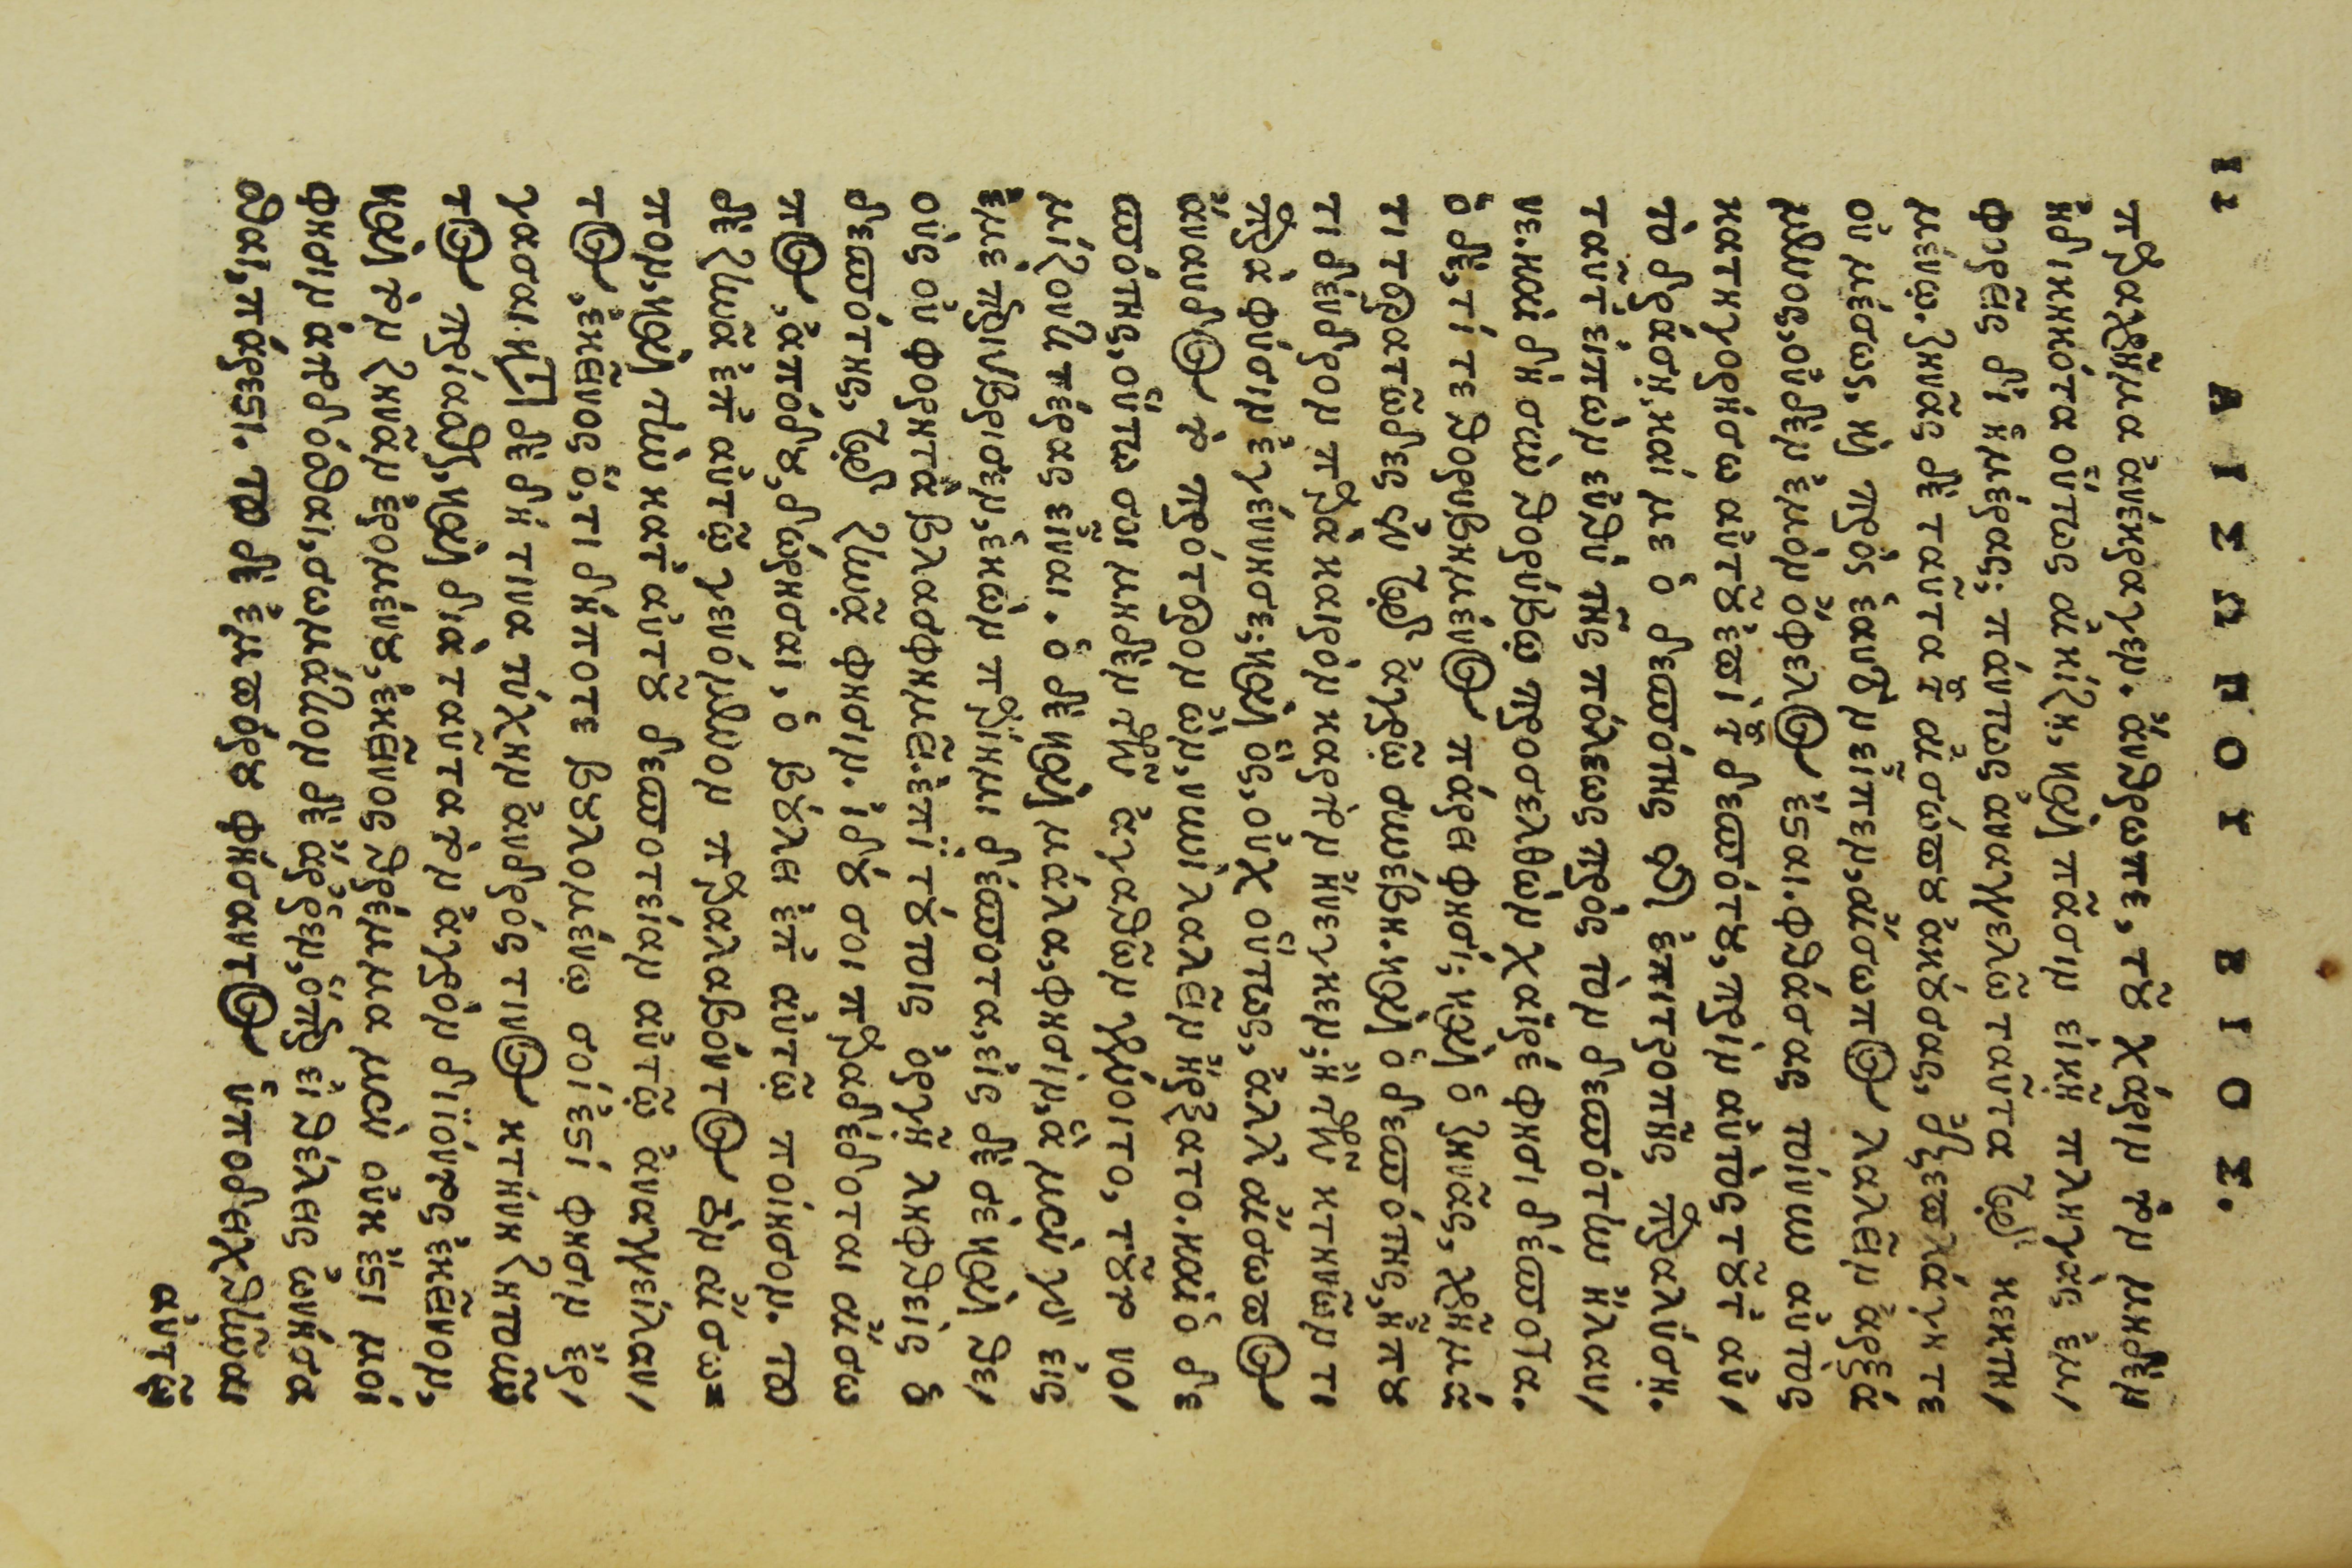 12 ΑΙΣΩΠΟΥ ΒΙΟΣ.
παραχρῆμα ἀνέκραγεν. ἄνθρωπε, τοῦ χάριν τὸν μηδὲν
ἠδικηκότα οὕτως αἰκίζῃ, καὶ πᾶσιν εἰκῆ πληγὰς ἐμ-
φορεῖς δι' ἡμέρας; πάντως ἀναγγελῶ ταῦτα τῷ κεκτη-
μένῳ. ζηνᾶς δὲ ταῦτα τοῦ αἰσώπου ἀκούσας, ἐξεπλάγη τε
οὐ μέσως, καὶ πρὸς ἑαυτὸν εἶπεν, αἴσωπος λαλεῖν ἀρξά
μενος, οὐδὲν ἐμὸν ὄφελος ἔσται. φθάσας τοίνυν αὐτὸς
κατηγορήσω αὐτοῦ ἐπὶ τοῦ δεσπότου, πρὶν αὐτὸς τοῦτ' αὐ-
τὸ δράσῃ, καί με ὁ δεσπότης τῆς ἐπιτροπῆς παραλύσῃ.
ταῦτ' εἰπὼν εὐθὺ τῆς πόλεως πρὸς τὸν δεσπότην ἤλαυ-
νε. καὶ δὴ σὺν θορύβῳ προσελθὼν χαῖρέ φησι δέσποτα.
ὁ δὲ, τί τεθορυβημένος πάρει φησί; καὶ ὁ ζηνᾶς, χρῆμά
τι τερατῶδες ἐν τῷ ἀγρῷ συνέβη. καὶ ὁ δεσπότης, ἤπου
τι δένδρον παρὰ καιρὸν καρπὸν ἤνεγκεν; ἢ τῶν κτηνῶν τι
παρὰ φύσιν ἐγέννησε; καὶ ὃς, οὐχ οὕτως, ἀλλ' αἴσωπος
ἄναυδος τὸ πρότερον ὤν, νυνὶ λαλεῖν ἤρξατο. καὶ ὁ δε
σπότης, οὕτω σοι μηδὲν τῶν ἀγαθῶν γένοιτο, τοῦτο νο-
μίζοντι τέρας εἶναι. ὁ δὲ καὶ μάλα, φησίν. ἃ μὲν γὰρ εἰς
ἐμὲ περιύβρισεν, ἑκὼν παρίημι δέσποτα. εἰς δὲ σὲ καὶ θε-
οὺς οὐ φορητὰ βλασφημεῖ. ἐπὶ τούτοις ὀργῇ ληφθεὶς ὁ
δεσπότης, τῷ ζηνᾷ φησιν. ἰδού σοι παραδέδοται αἴσω
πος, ἀπόδου, δώρησαι, ὃ βούλει ἐπ' αὐτῷ ποίησον. τοῦ
δὲ ζηνᾶ ἐπ' αὐτῷ γενόμενον παραλαβόντος τὸν αἴσω=
πον, καὶ τὴν κατ' αὐτοῦ δεσποτείαν αὐτῷ ἀναγγείλαν-
τος, ἐκεῖνος ὅ,τι δήποτε βουλομένῳ σοί ἐστί φησιν ἔρ-
γασαι. κατὰ δὲ δή τινα τύχην ἀνδρός τινος κτήνη ζητοῦν
τος πρίασθαι, καὶ διὰ ταῦτα τὸν ἀγρὸν διϊόντος ἐκεῖνον,
καὶ τὸν ζηνᾶν ἐρομένου, ἐκεῖνος θρέμμα μὲν οὐκ ἔστι μοί
φησιν ἀποδόσθαι, σωμάτιον δὲ ἄρρεν, ὅπερ εἰ θέλεις ὠνήσα
σθαι, πάρεστι. τοῦ δὲ ἐμπόρου φήσαντος ὑποδειχθῆναι
αὐτῷ